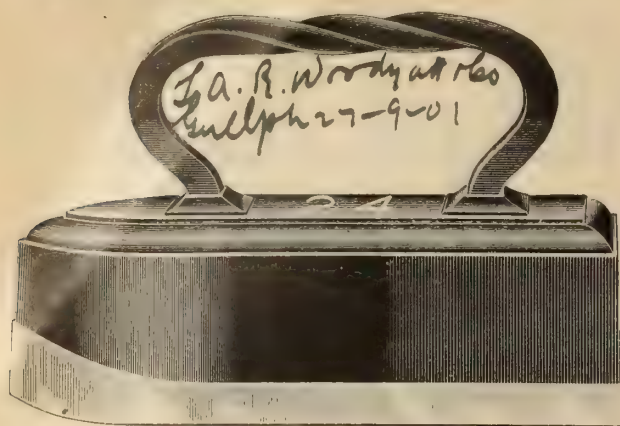 A. R. Woodyatt & Co
Guelph 27-9-01
24